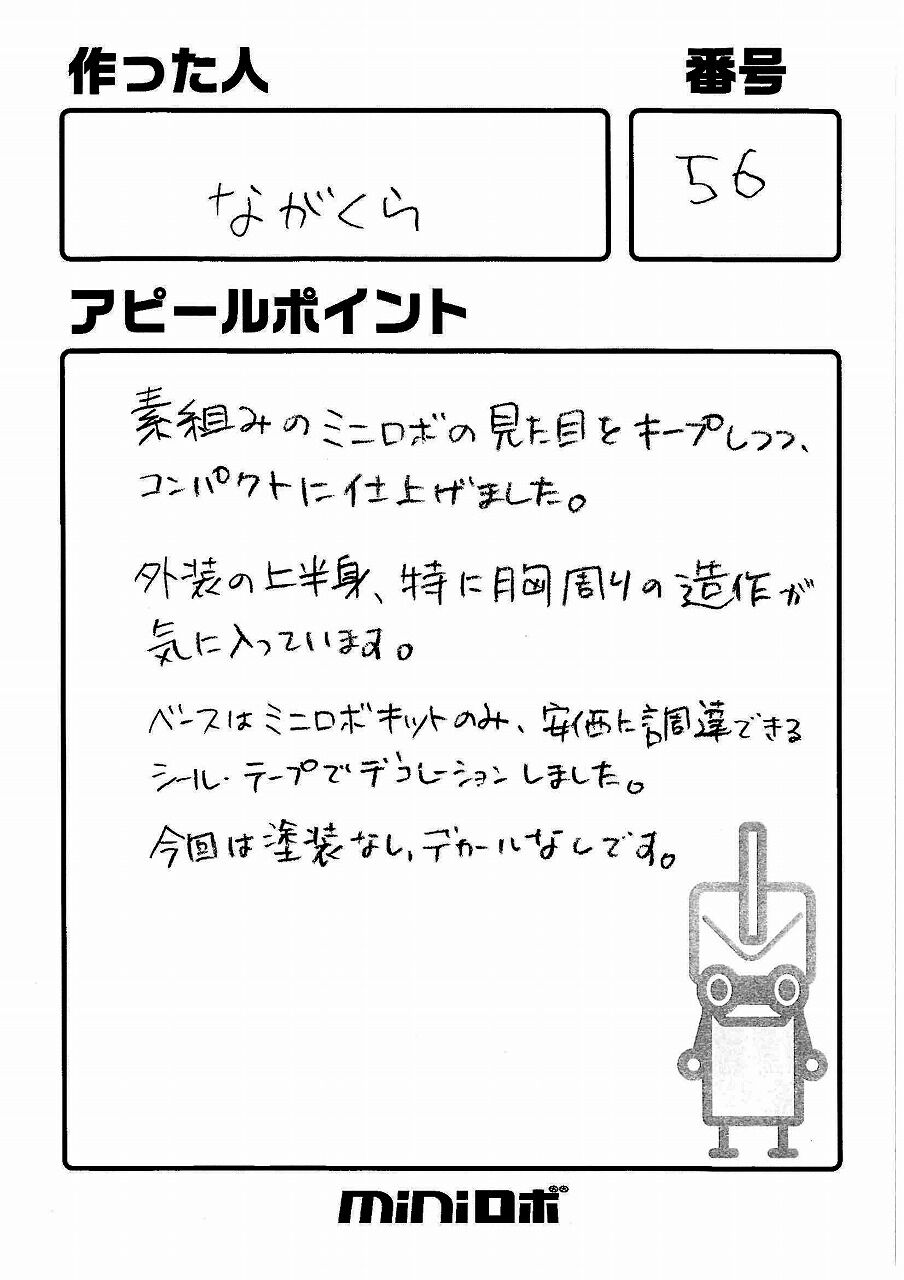 作った人
番号
ながくら
56
アピールポイント
素組みのミニロボの見た目をキープしつつ、
コンパクトに仕上げました。
外装の上半身、特に胸周りの造作が
気に入っています。
ベースはミニロボキットのみ、安価に調達できる
シール・テープでデコレーションしました。
今回は塗装なし、デカールなしです。
miniロボ